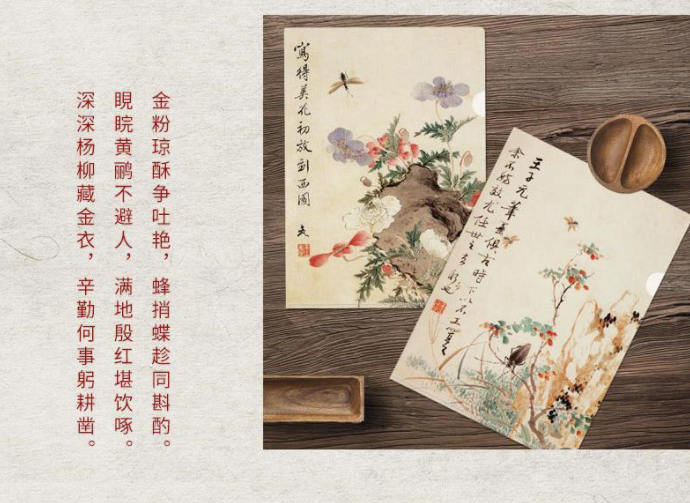 金粉琼酥争吐艳，蜂捎蝶趁同斟酌。
睍睆黄鹂不避人，满地殷红堪饮啄。
深深杨柳藏金衣，辛勤何事躬耕凿。
寫得美花初放到西園
王子元筆意俱古時下以不工